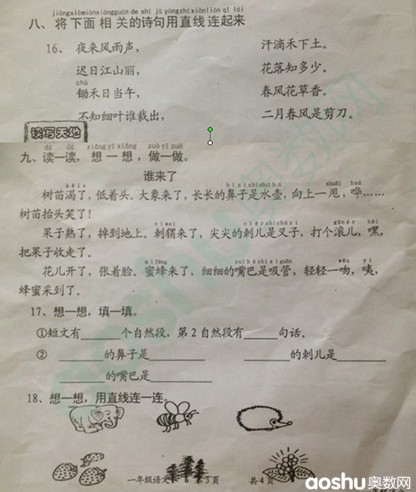 jiāngxiàmiànxiāngguān de shī jù yòngzhíxiànlián qǐ lái
八、将下面相关的诗句用直线连起来
16、夜来风雨声， 汗滴禾下土。
迟日江山丽， 花落知多少。
chú
锄禾日当午， 春风花草香。
不知细叶谁裁出， 二月春风是剪刀。
读写天地
dú dú xiǎng yī xiǎng zuò yī zuò
九、读一读，想一想，做一做。
谁来了
树苗渴了，低着头、大象来了，长长的鼻子是水壶，向上一甩，哗……
树苗抬头笑了！
果子熟了，掉到地上。刺猬来了，尖尖的刺儿是叉子，打个滚儿，嘿，
把果子收走了。
花儿开了，张着脸。蜜蜂来了，细细的嘴巴是吸管，轻轻一吻，咦，
蜂蜜采到了。
17、想一想，填一填。
①短文有_____个自然段，第2自然段有_____句话、
② _____的鼻子是_____ _____的刺儿是_____
_____的嘴巴是_____
18、想一想，用直线连一连。
一年级语文 3页 共4页
aoshu奥数网